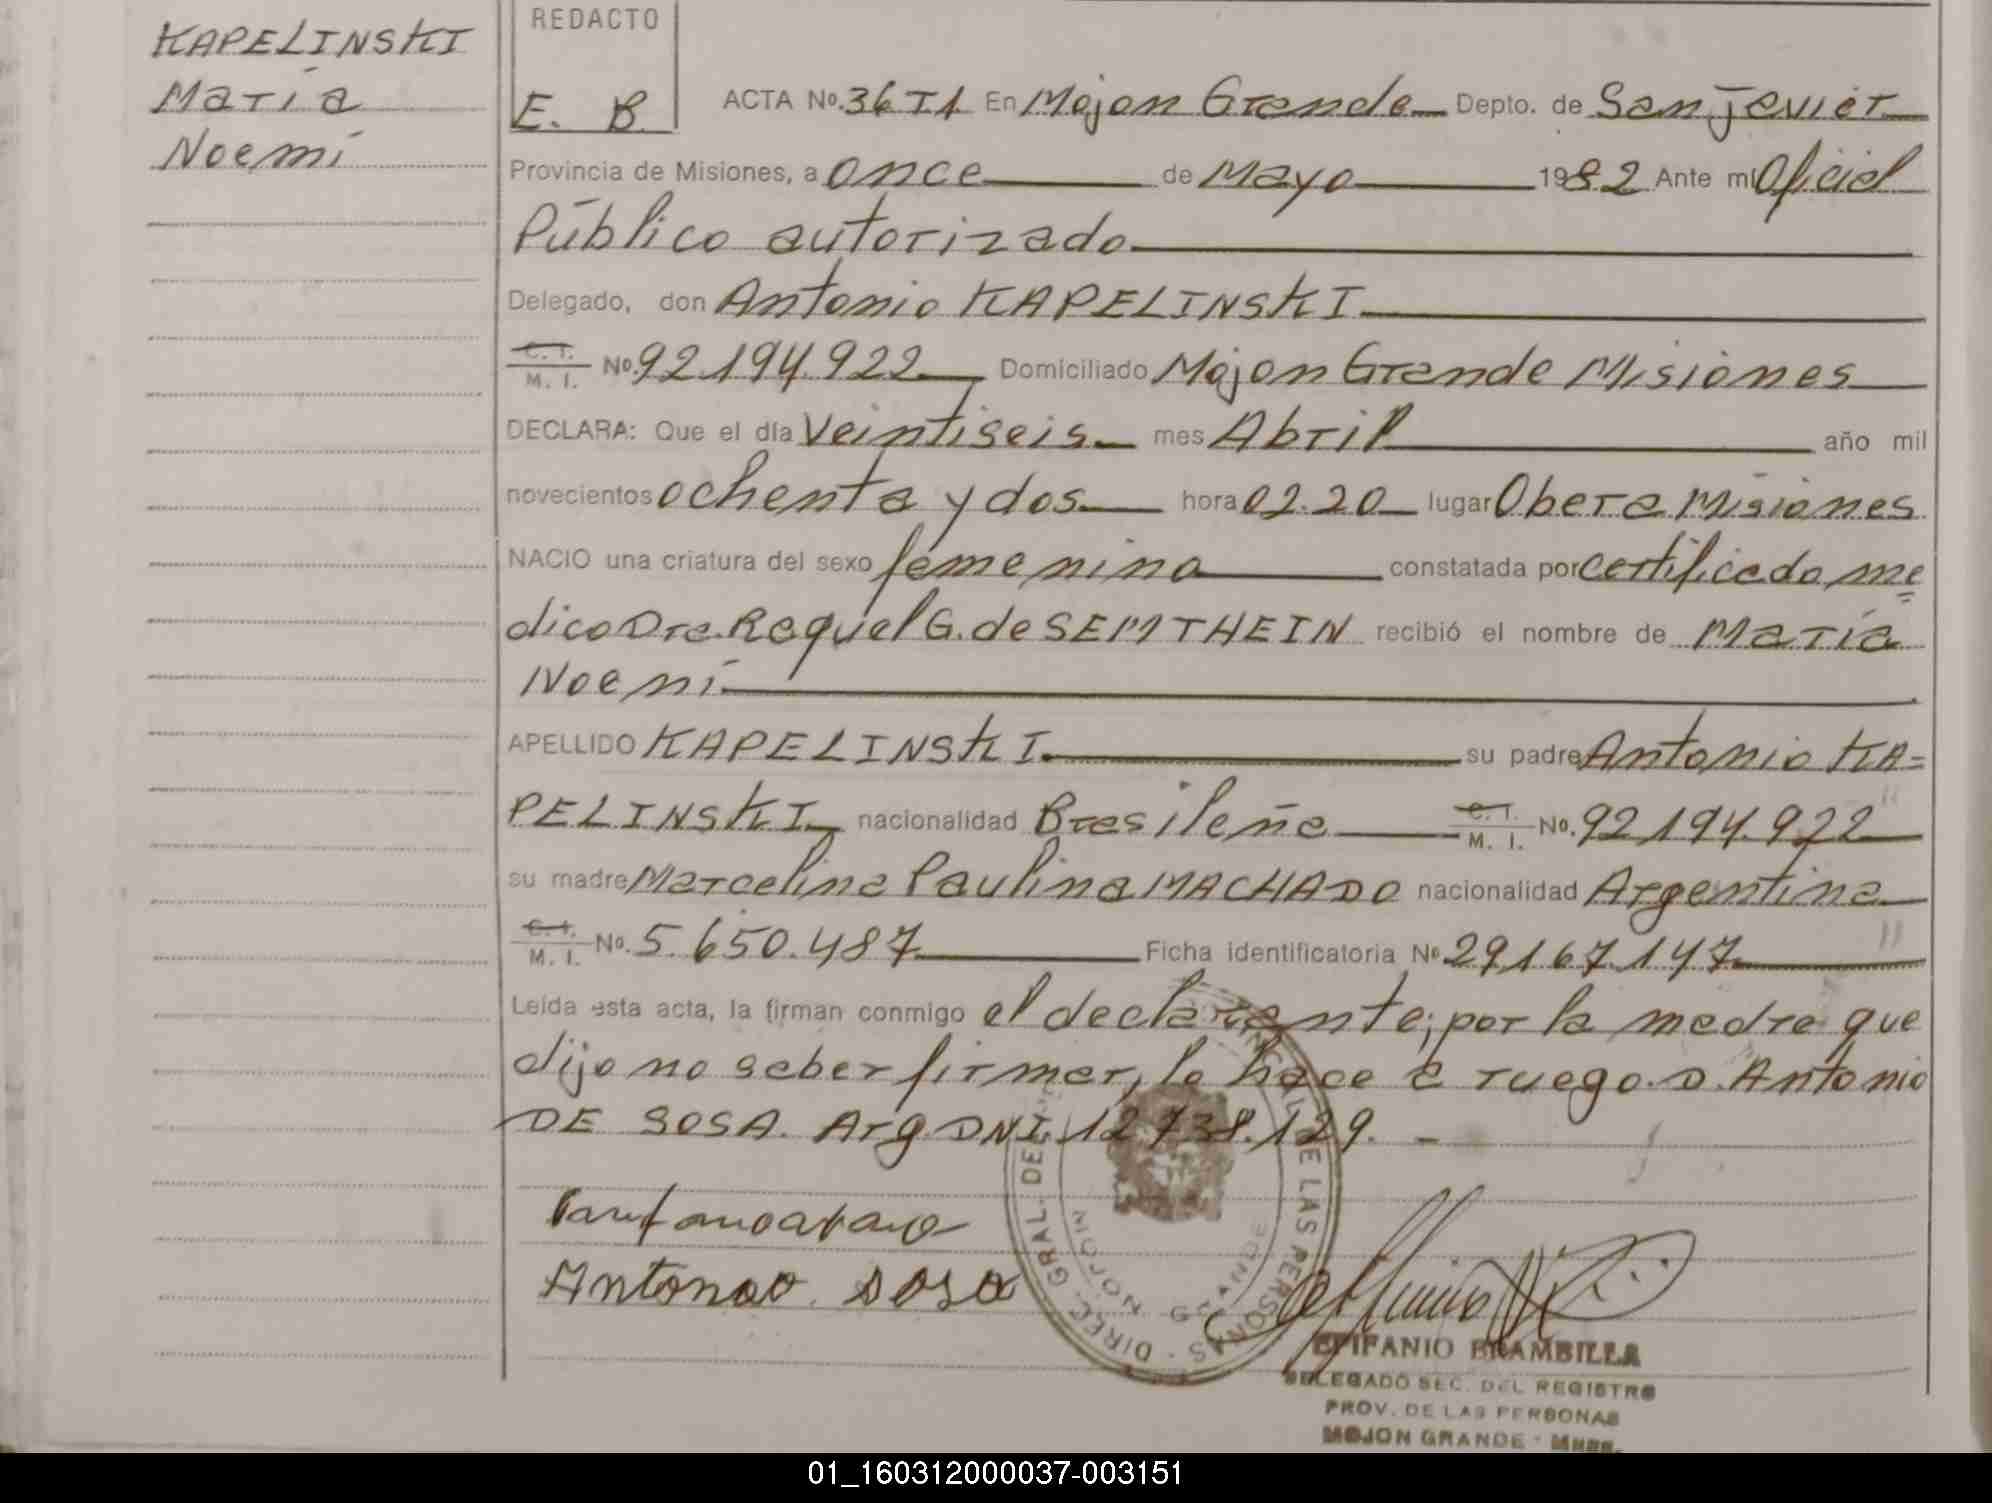 KAPELINSKI
María
Noemí
REDACTO
E. B.
ACTA No. 36 T1 En Mojon Grande Depto. de San Javier
Provincia de Misiones, a once de Mayo 1982 Ante mí Oficial
Público autorizado
Delegado, don Antonio KAPELINSKI
C. I.
M. I. No. 92.194.922 Domiciliado Mojon Grande Misiones
DECLARA: Que el día Veintiseis mes Abril año mil
novecientos ochenta y dos hora 02.20 lugar Obera Misiones
NACIO una criatura del sexo femenino constatada por certificado me
dico Dra. Raquel G. de SEMTHEIN recibió el nombre de María
Noemí
APELLIDO KAPELINSKI su padre Antonio KA=
PELINSKI nacionalidad Brasileña C. I.
M. I. No. 92 194.922
su madre Marcelina Paulina MACHADO nacionalidad Argentina
C. I.
M. I. No. 5.650.487 Ficha identificatoria No 29167.147
Leída esta acta, la firman conmigo el declarante; por la madre que
dijo no saber firmar, lo hace a ruego D. Antonio
DE SOSA. Arg. DNI. 12.738.129. -
Antonao sosa
DIREC. GRAL. DEL PROVINCIAL DE LAS PERSONAS
MOJON GRANDE
EPIFANIO BRAMBILLA
DELEGADO SEC. DEL REGISTRO
PROV. DE LAS PERSONAS
MOJON GRANDE - Mnes.
01_160312000037-003151